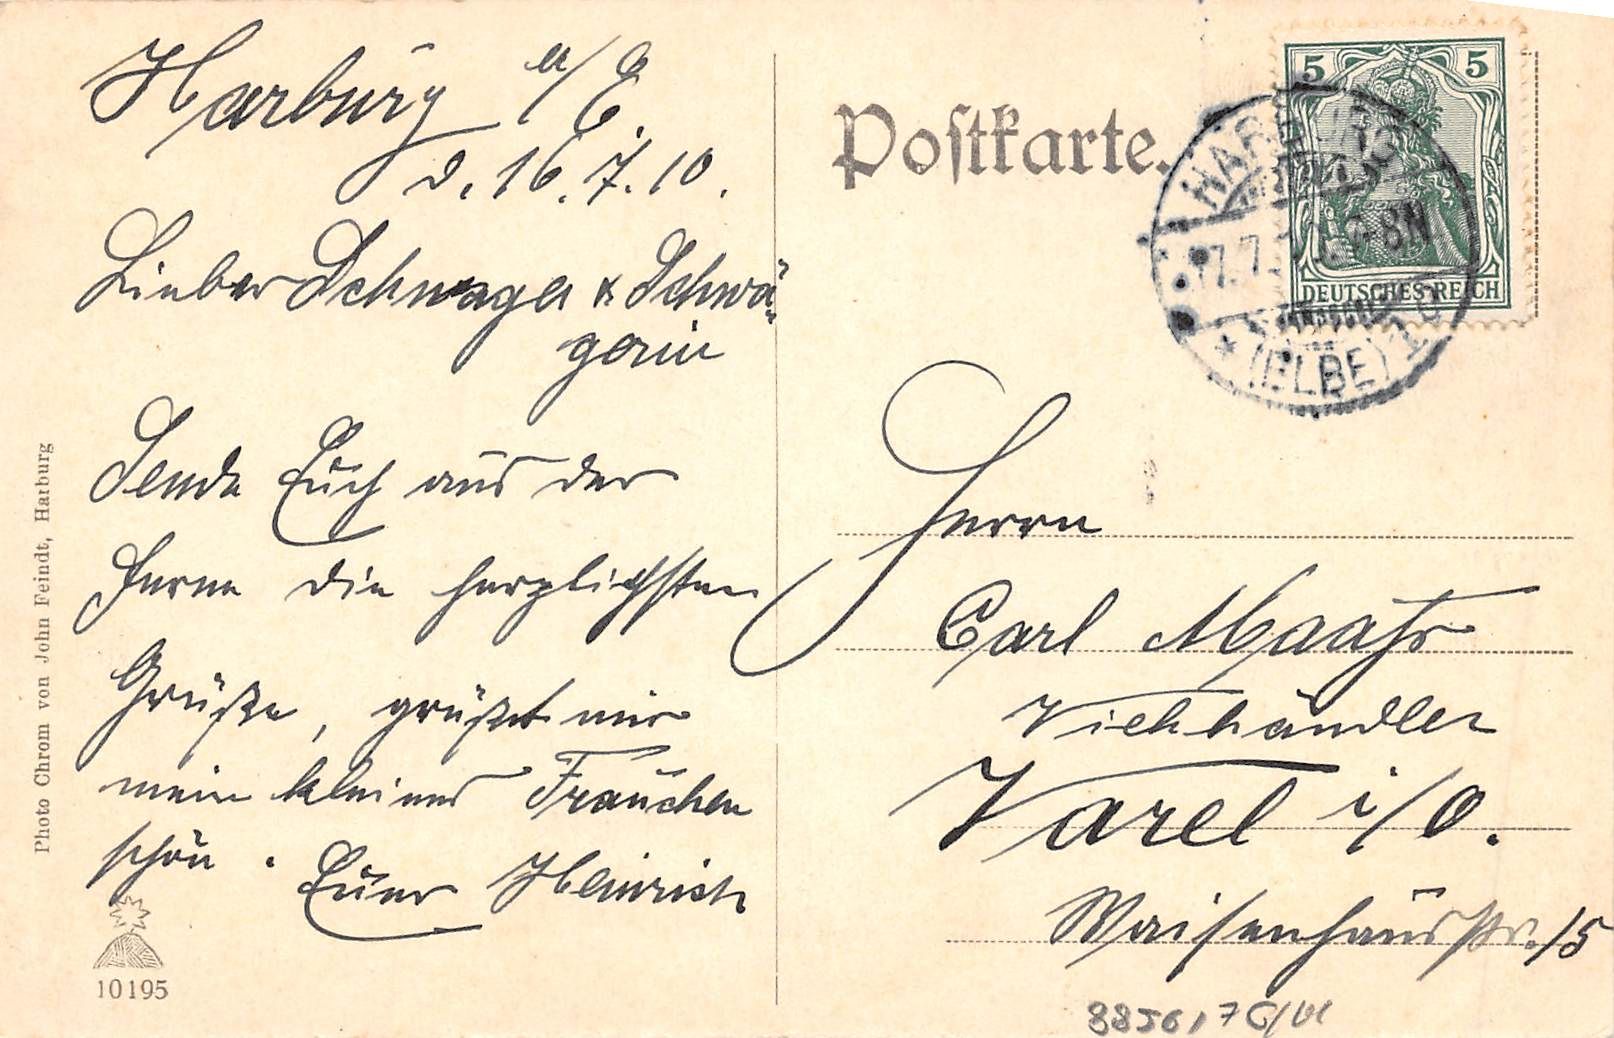 Harburg a/E.
d. 16.7.10.
Lieber Schwager & Schwä-
gerin
Sende Euch aus der
Ferne die herzlichsten
Grüße, grüßet mir
mein kleines Frauchen
schön. Euer Heinrich
Photo Chrom von John Feindt, Harburg
10195
Postkarte.
5 5
DEUTSCHES REICH
HARBURG
17.7.10. 7-8N
* (ELBE) 1
Herrn
Carl Maahs
Viehhändler
Varel i/O.
Waisenhausstr. 15